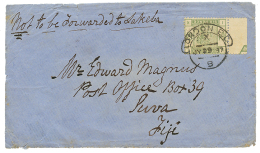 Not to be Forwarded to Lakeba
LONDON
Mr Edward Magnus
Post Office Box 39
Suva
Fiji